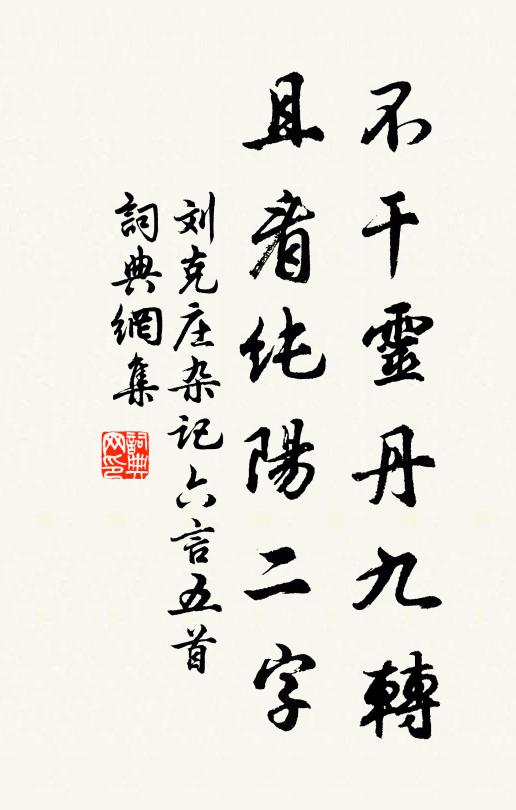 不干靈丹九轉
且看纯陽二字
刘克庄杂记六言五首
詞典網集
詞典网印